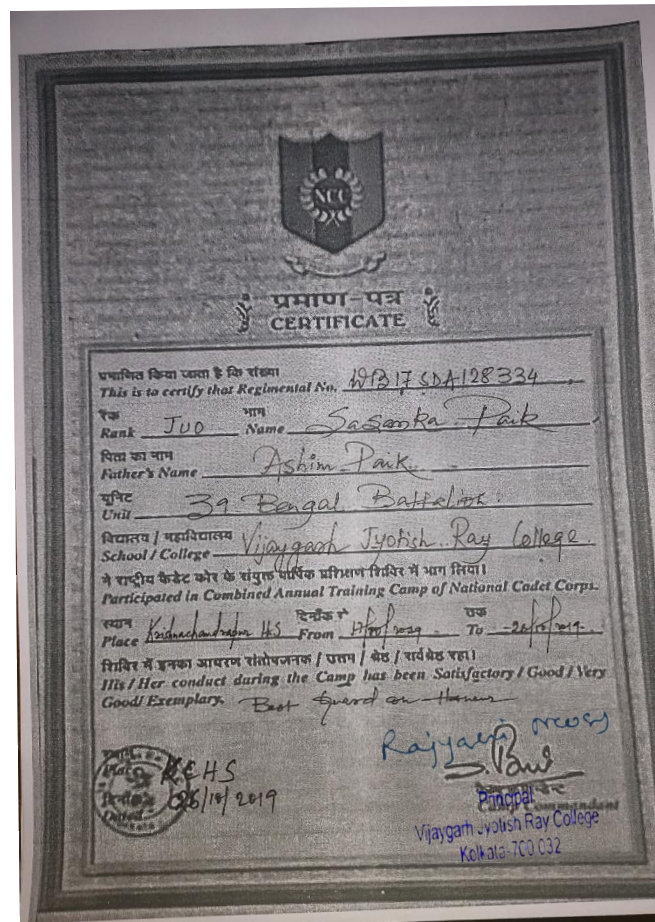 NCC
प्रमाण-पत्र
CERTIFICATE
प्रमाणित किया जाता है कि संख्या
This is to certify that Regimental No. WB17SDA128334
रैंक नाम
Rank JUO Name Sasanka Paik
पिता का नाम
Father's Name Ashim Paik
यूनिट
Unit 39 Bengal Battalion
विद्यालय / महाविद्यालय
School / College Vijaygarh Jyotish Ray College
ने राष्ट्रीय कैडेट कोर के संयुक्त वार्षिक प्रशिक्षण शिविर में भाग लिया।
Participated in Combined Annual Training Camp of National Cadet Corps.
स्थान दिनाँक से तक
Place Krishnachandrapur HS From 17/10/2019 To 26/10/2019
शिविर में इनका आचरण संतोषजनक / उत्तम / श्रेष्ठ / सर्वश्रेष्ठ रहा।
His / Her conduct during the Camp has been Satisfactory / Good / Very
Good/ Exemplary. Best Guard on Honour
KCHS
26/10/2019
Dated
Principal
Commandant
Vijaygarh Jyotish Ray College
Kolkata-700 032